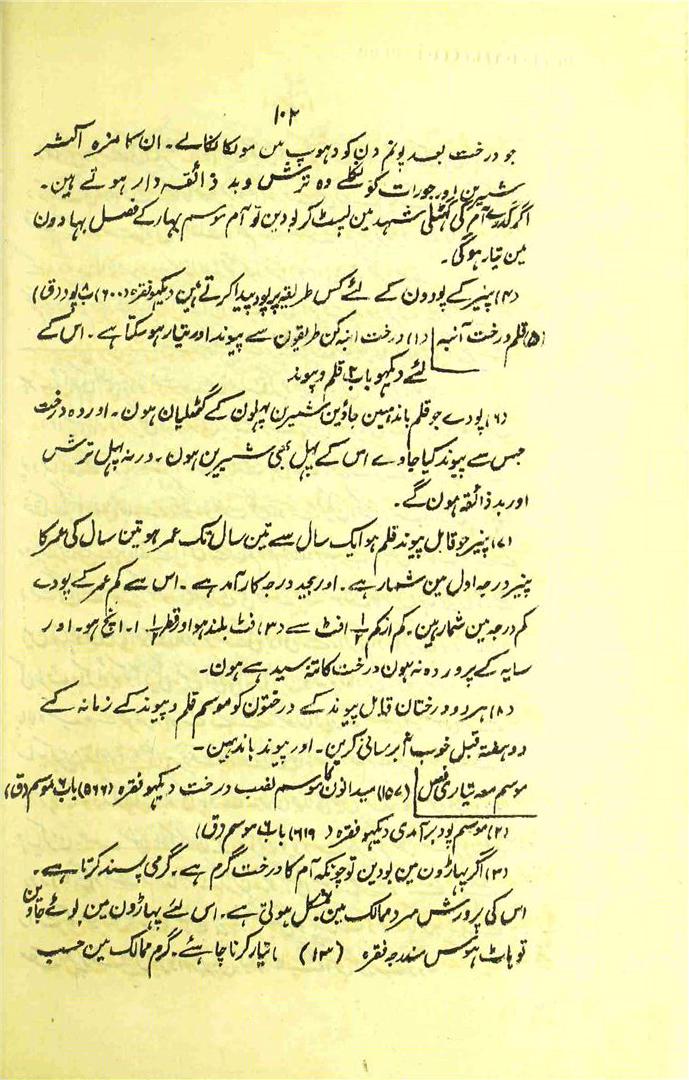 ۱۰۲
جو درخت بعد پونم دن کو دہوپ میں مولکا لگالے۔ ان کا مزہ اکثر
شیرین اور جو رات کو نکلے وہ ترش و بد ذائقہ دار ہوتے ہین۔
اگر گدرے آم کی گٹھلی شہد مین لپیٹ کر بودین تو آم موسم بہار کے فصل بہادون
مین تیار ہوگی۔
(۴) پنیر کے پودون کے لئے کس طریقہ پر پود پیدا کرتے ہین دیکہو فقرہ (۶۰۰) باب ۸ پود (ق)
(۵) قلم درخت آنبہ (۱) درخت انبہ کن طریقون سے پیوند اور تیار ہو سکتا ہے۔ اس کے
لئے دیکہو باب ۲ قلم و پیوند
(۶) پودے جو قلم باندہین جاوین شیرین پہلون کے گٹھلیان ہون۔ اور وہ درخت
جس سے پیوند کیا جاوے اس کے پہل بہی شیرین ہون۔ ورنہ پہل ترش
اور بد ذائقہ ہون گے۔
(۷) پنیر جو قابل پیوند قلم ہو ایک سال سے تین سال تک عمر ہو تین سال کی عمر کا
پنیر درجہ اول مین شمار ہے۔ اور بیحد درجہ کارآمد ہے۔ اس سے کم عمر کے پودے
کم درجہ مین شمار ہین۔ کم از کم ۱/۲ ا فٹ سے (۳) فٹ بلند ہو اور قطر ۱/۲ ۔ ۱ ۔ انچ ہو۔ اور
سایہ کے پروردہ نہ ہون درخت کا تنہ سید ہے ہون۔
(۸) ہر دو درختان قابل پیوند کے درختون کو موسم قلم و پیوند کے زمانہ کے
دو ہفتہ قبل خوب آبرسائی کرین۔ اور پیوند باندہین۔
موسم معہ تیاری فصل (۱۵۷) میدانون کا موسم نصب درخت دیکہو فقرہ (۵۶۶) باب ۶ موسم (ق)
(۲) موسم پود برآمدی دیکہو فقرہ (۶۱۹) باب ۶ موسم (ق)
(۳) اگر پہاڑون مین بودین تو چونکہ آم کا درخت گرم ہے۔ گرمی پسند کرتا ہے۔
اس کی پرورش سرد ممالک مین بمشکل ہوتی ہے۔ اس لئے پہاڑون مین بوئے جاوین
تو ہاٹ ہوس مندرجہ فقرہ (۱۳) تیار کرنا چاہئے۔ گرم ممالک مین حسب